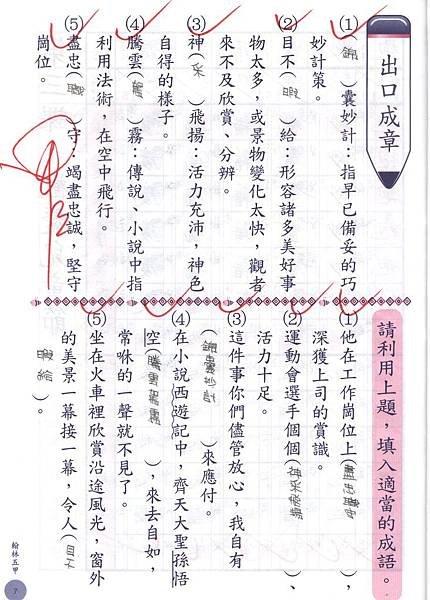 出口成章
(1)(錦)囊妙計：指早已備妥的巧
妙計策。
(2)目不(暇)給：形容諸多美好事
物太多，或景物變化太快，觀者
來不及欣賞、分辨。
(3)神(采)飛揚：活力充沛，神色
自得的樣子。
(4)騰雲(駕)霧：傳說、小說中指
利用法術，在空中飛行。
(5)盡忠(職)守：竭盡忠誠，堅守
崗位。
請利用上題，填入適當的成語。
(1)他在工作崗位上(盡忠職守)，
深獲上司的賞識。
(2)運動會選手個個(神采飛揚)、
活力十足。
(3)這件事你們儘管放心，我自有
(錦囊妙計)來應付。
(4)在小說西遊記中，齊天大聖孫悟
空(騰雲駕霧)，來去自如，
常咻的一聲就不見了。
(5)坐在火車裡欣賞沿途風光，窗外
的美景一幕接一幕，令人(目不
暇給)。
翰林五甲
7